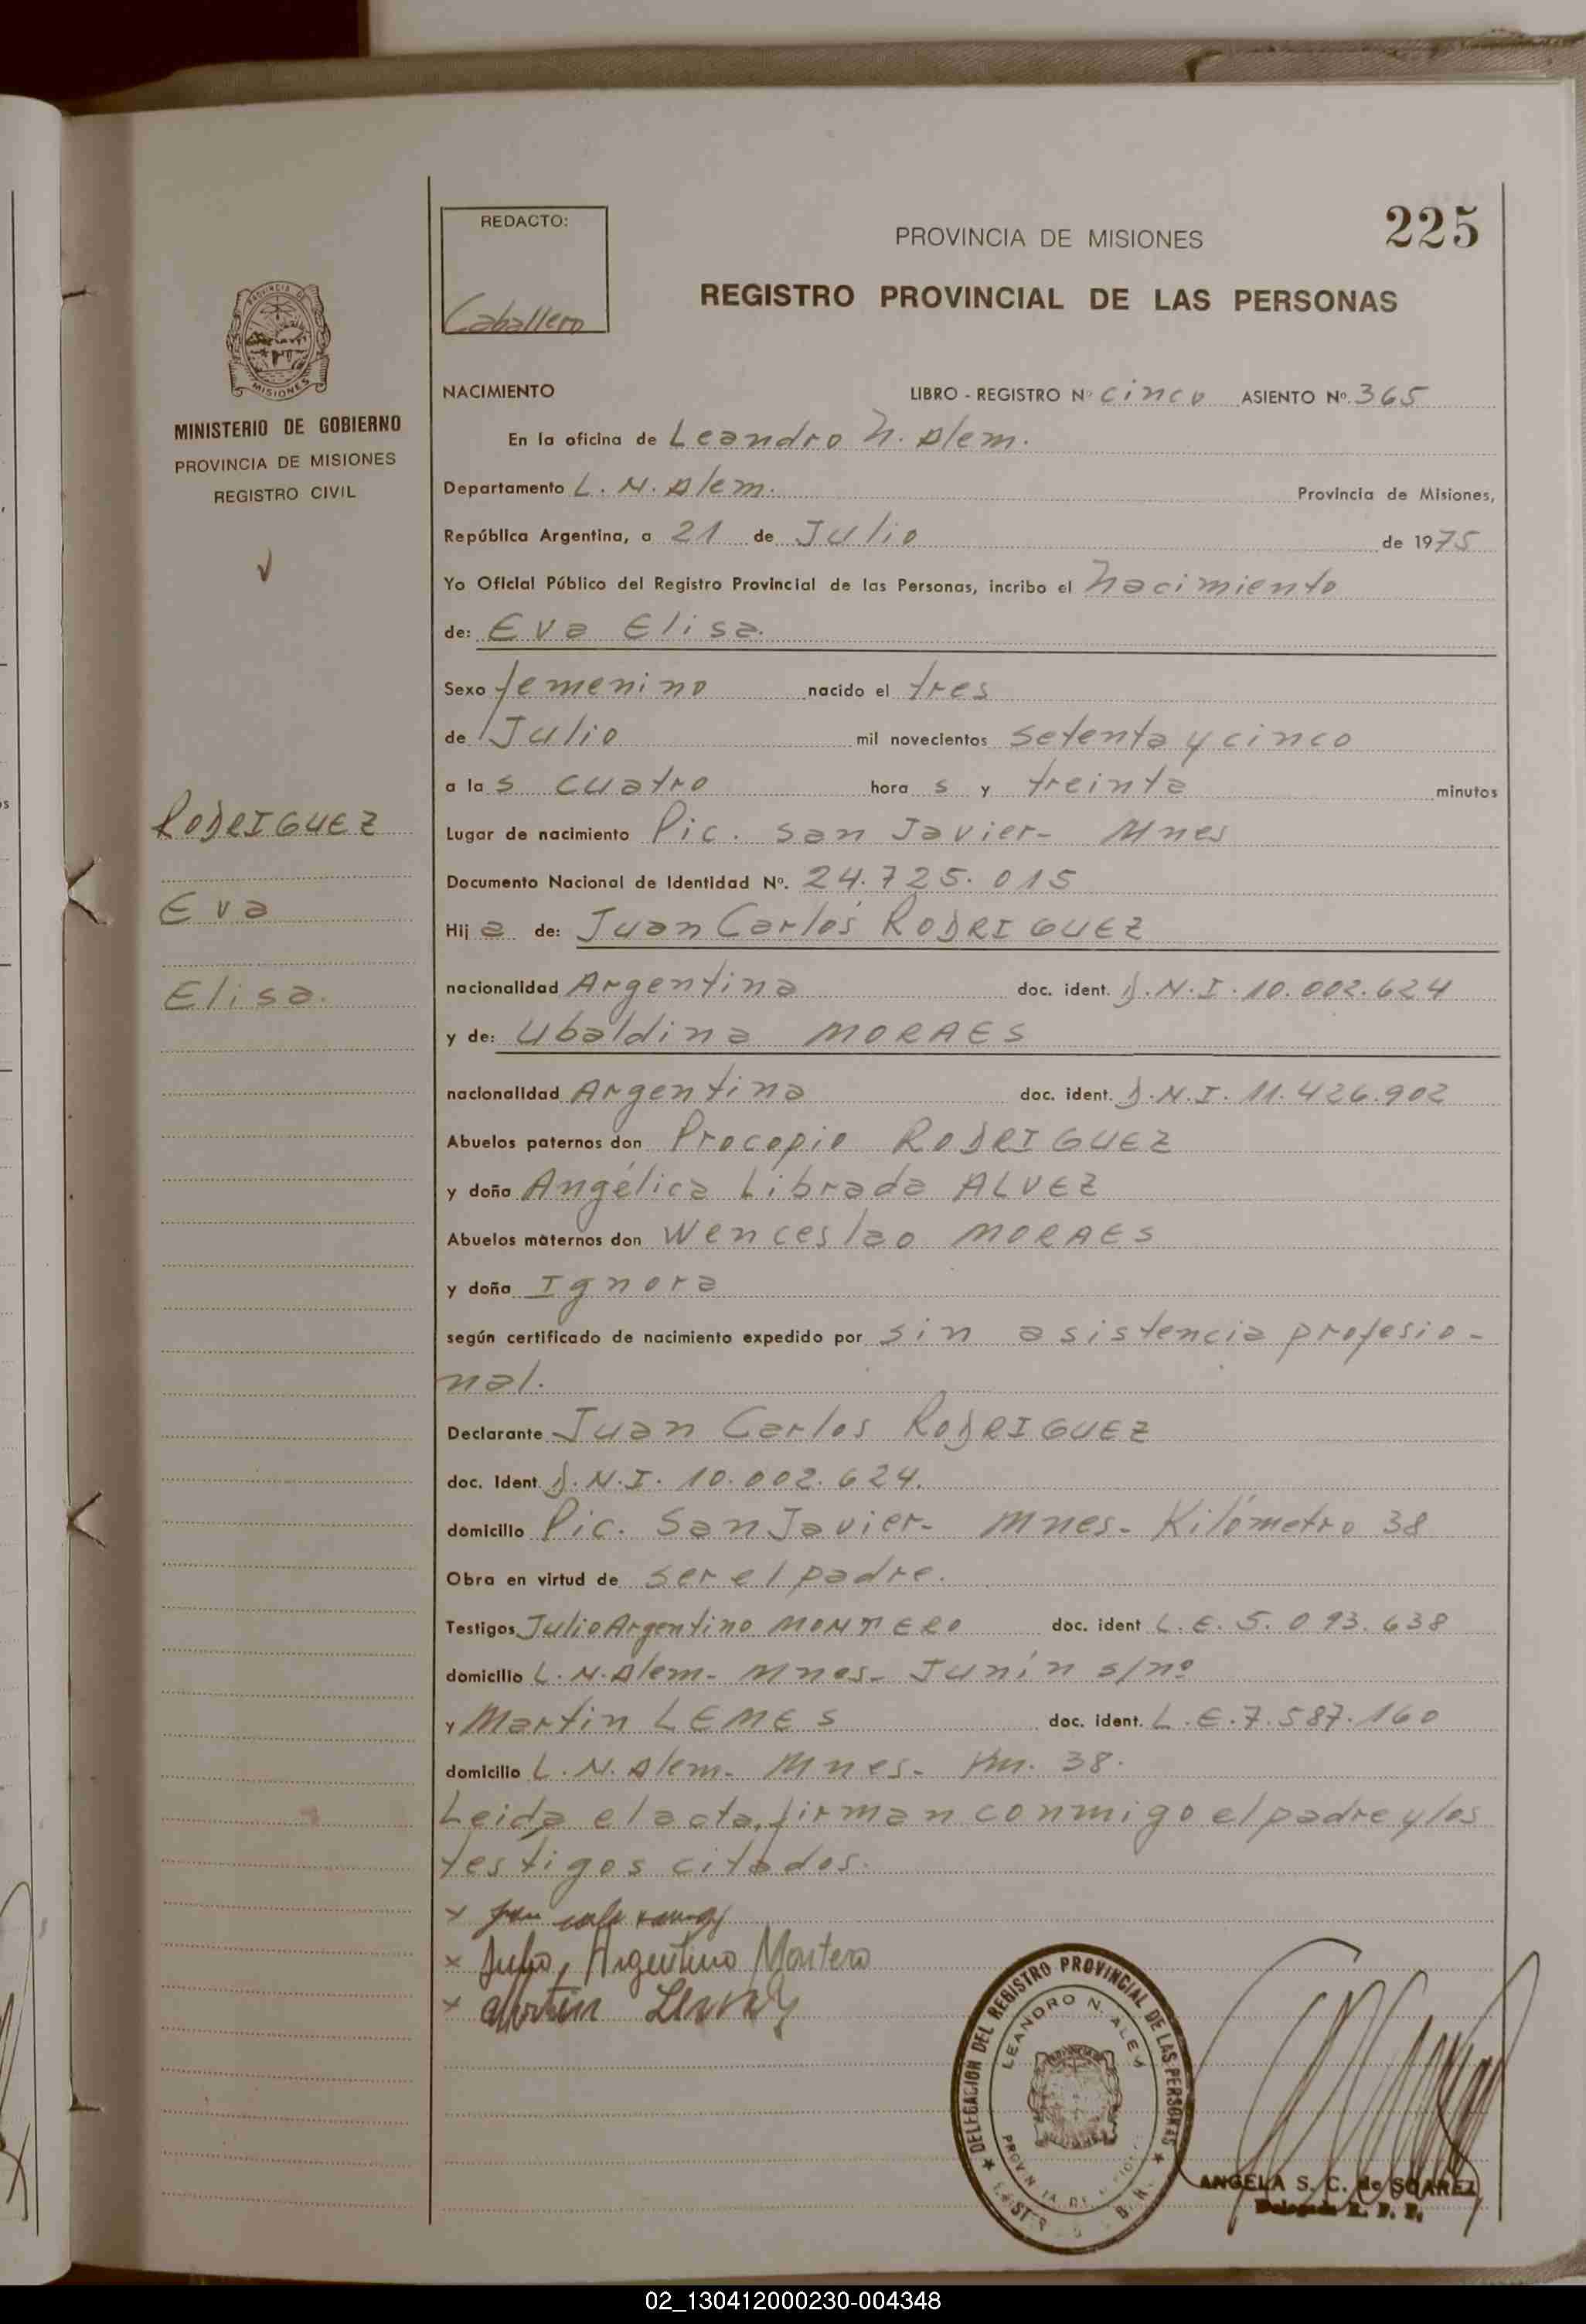 225
REDACTO:
Caballero
PROVINCIA DE MISIONES
REGISTRO PROVINCIAL DE LAS PERSONAS
MISIONES
MINISTERIO DE GOBIERNO
PROVINCIA DE MISIONES
REGISTRO CIVIL
RODRIGUEZ
Eva
Elisa.
NACIMIENTO LIBRO - REGISTRO Nº cinco ASIENTO Nº. 365
En la oficina de Leandro N. Alem.
Departamento L. N. Alem. Provincia de Misiones,
República Argentina, a 21 de Julio de 1975
Yo Oficial Público del Registro Provincial de las Personas, incribo el Nacimiento
de: Eva Elisa.
Sexo femenino nacido el tres
de Julio mil novecientos setenta y cinco
a las cuatro hora s y treinta minutos
Lugar de nacimiento Pic. San Javier- Mnes
Documento Nacional de Identidad Nº. 24.725.015
Hija de: Juan Carlos RODRIGUEZ
nacionalidad Argentina doc. ident. D.N.I. 10.002.624
y de: Ubaldina MORAES
nacionalidad Argentina doc. ident. D.N.I. 11.426.902
Abuelos paternos don Procopio RODRIGUEZ
y doña Angélica Librada ALVEZ
Abuelos maternos don Wenceslao MORAES
y doña Ignora
según certificado de nacimiento expedido por sin asistencia profesio-
nal.
Declarante Juan Carlos RODRIGUEZ
doc. Ident. D.N.I. 10.002.624.
domicilio Pic. San Javier- Mnes- Kilómetro 38
Obra en virtud de ser el padre.
Testigos Julio Argentino MONTERO doc. ident L.E. 5.093.638
domicilio L.N. Alem- Mnes- Junín s/nº
y Martin LEMES doc. ident. L.E. 7.587.160
domicilio L.N. Alem- Mnes- Km. 38.
Leida el acta, firman conmigo el padre y los
testigos citados.
x
x Julio, Argentino Montero
x Martin
DELEGACION DEL REGISTRO PROVINCIAL DE LAS PERSONAS
LEANDRO N. ALEM
ANGELA S. C. de SOAREZ
Delegada R. P. P.
02_130412000230-004348